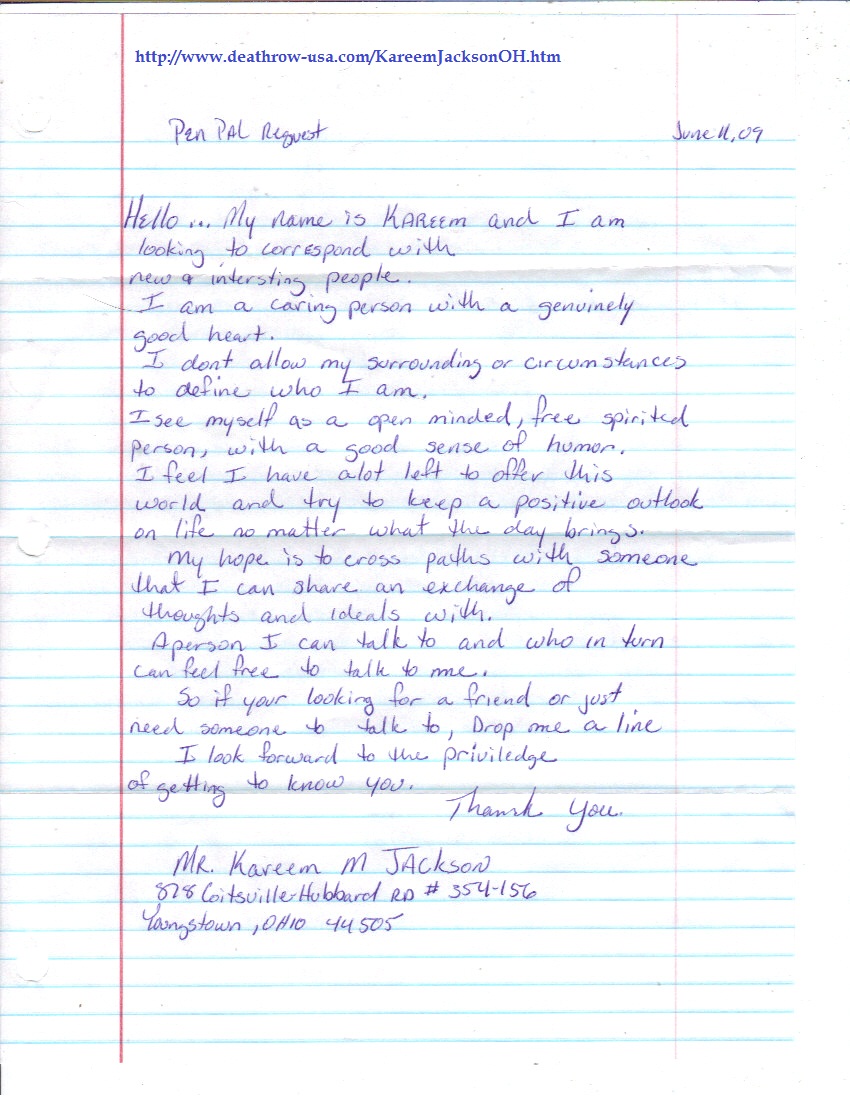 http://www.deathrow-usa.com/KareemJacksonOH.htm
Pen PAL Request June 11, 09
Hello... My name is KAREEM and I am
looking to correspond with
new & intersting people.
I am a caring person with a genuinely
good heart.
I dont allow my surrounding or circumstances
to define who I am.
I see myself as a open minded, free spirited
person, with a good sense of humor.
I feel I have alot left to offer this
world and try to keep a positive outlook
on life no matter what the day brings.
My hope is to cross paths with someone
that I can share an exchange of
thoughts and ideals with.
A person I can talk to and who in turn
can feel free to talk to me.
So if your looking for a friend or just
need someone to talk to, Drop me a line
I look forward to the priviledge
of getting to know you.
Thank You.
MR. Kareem M JACKSON
878 Coitsville-Hubbard RD # 354-156
Youngstown, OHIO 44505